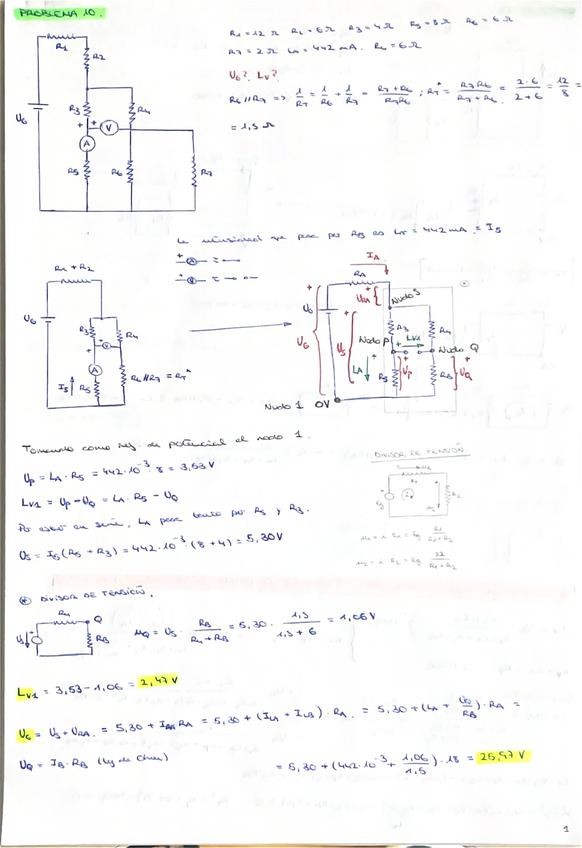 PROBLEMA 10.
R1 = 12 Ω R2 = 6 Ω R3 = 4 Ω R5 = 8 Ω R6 = 6 Ω
R7 = 2 Ω LA = 442 mA. R4 = 6 Ω
UG? LV?
R6 // R7 => 1/RT = 1/R6 + 1/R7 = R7+R6/R7R6 ; RT* = R7R6/R7+R6 = 2·6/2+6 = 12/8 =
= 1,5 Ω
R1
R2
R3
R4
UG
+
+
V
A
R5
R6
R7
La intensidad que pasa por R5 es LA = 442 mA = I5
+ A ≈
+ V ≈
R1 + R2
UG
R3
R4
+
V
A
I5
R5
R6 // R7 = RT*
IA
RA
UG
URA
Nudo S
R3
R4
US
Nudo P
LV1
Nudo Q
LA
R5
UP
RB
UQ
Nudo 1 0V
Tomando como ref. de potencial el nodo 1.
UP = LA · R5 = 442·10⁻³ · 8 = 3,53 V
LV1 = UP - UQ = LA · R5 - UQ
Por estar en serie, LA pasa tanto por R5 y R3.
US = I5 (R5 + R3) = 442·10⁻³ (8 + 4) = 5,30 V
DIVISOR DE TENSIÓN
* DIVISOR DE TENSION.
R4
Q
US
RB
UQ = US · RB/R4 + RB = 5,30 · 1,5/1,5 + 6 = 1,06 V
LV1 = 3,53 - 1,06 = 2,47 V
UG = US + URA = 5,30 + IA RA = 5,30 + (ILA + ILB) · RA = 5,30 + (LA + UQ/RB) · RA =
UQ = IB · RB (Ley de Ohm)
= 5,30 + (442·10⁻³ + 1,06/1,5) · 18 = 25,97 V
1